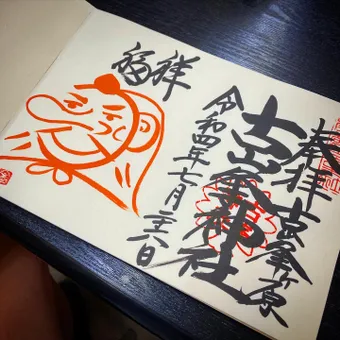 奉拝 古峯ヶ原
古峯神社
令和四年七月二十六日
福祥